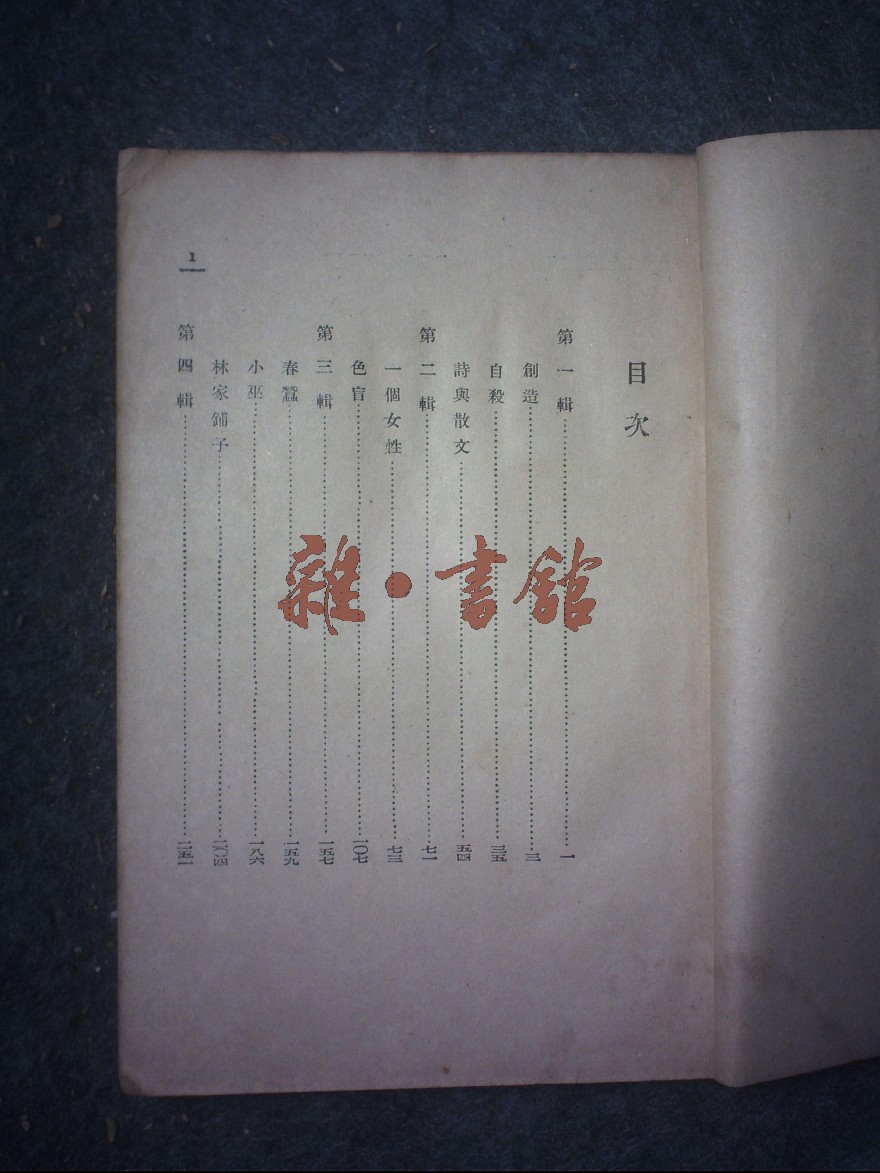 目次
第一輯…………一
創造…………三
自殺…………三五
詩與散文…………五四
第二輯…………七一
一個女性…………七三
色盲…………一〇七
第三輯…………一五七
春蠶…………一五九
小巫…………一八六
林家鋪子…………二〇四
第四輯…………二五一
1
雜·書館